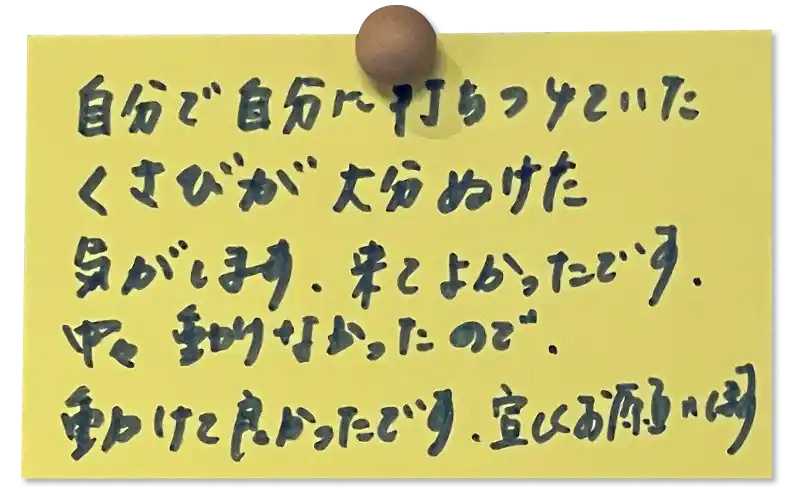 自分で自分に打ちつけていた
くさびが大分ぬけた
気がします. 来てよかったです.
中々動けなかったので.
動けて良かったです. 宜しくお願いします